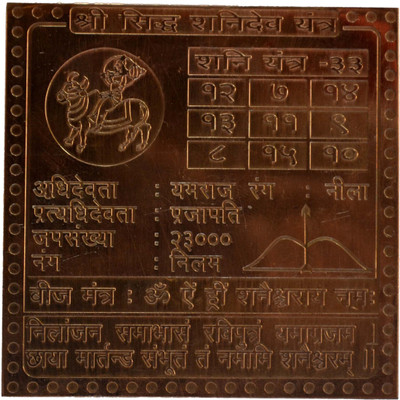 श्री सिद्ध शनिदेव यंत्र
शनि यंत्र -३३
१२ ७ १४
१३ ११ ९
८ १५ १०
अधिदेवता : यमराज रंग : नीला
प्रत्यधिदेवता : प्रजापति
जपसंख्या : २३०००
नंग : निलम
बीज मंत्र : ॐ ऐं ह्रीं शनैश्चराय नमः
निलांजन समाभासं रविपुत्रं यमाग्रजम् |
छाया मार्तन्ड संभूतं तं नमामि शनैश्चरम् ||